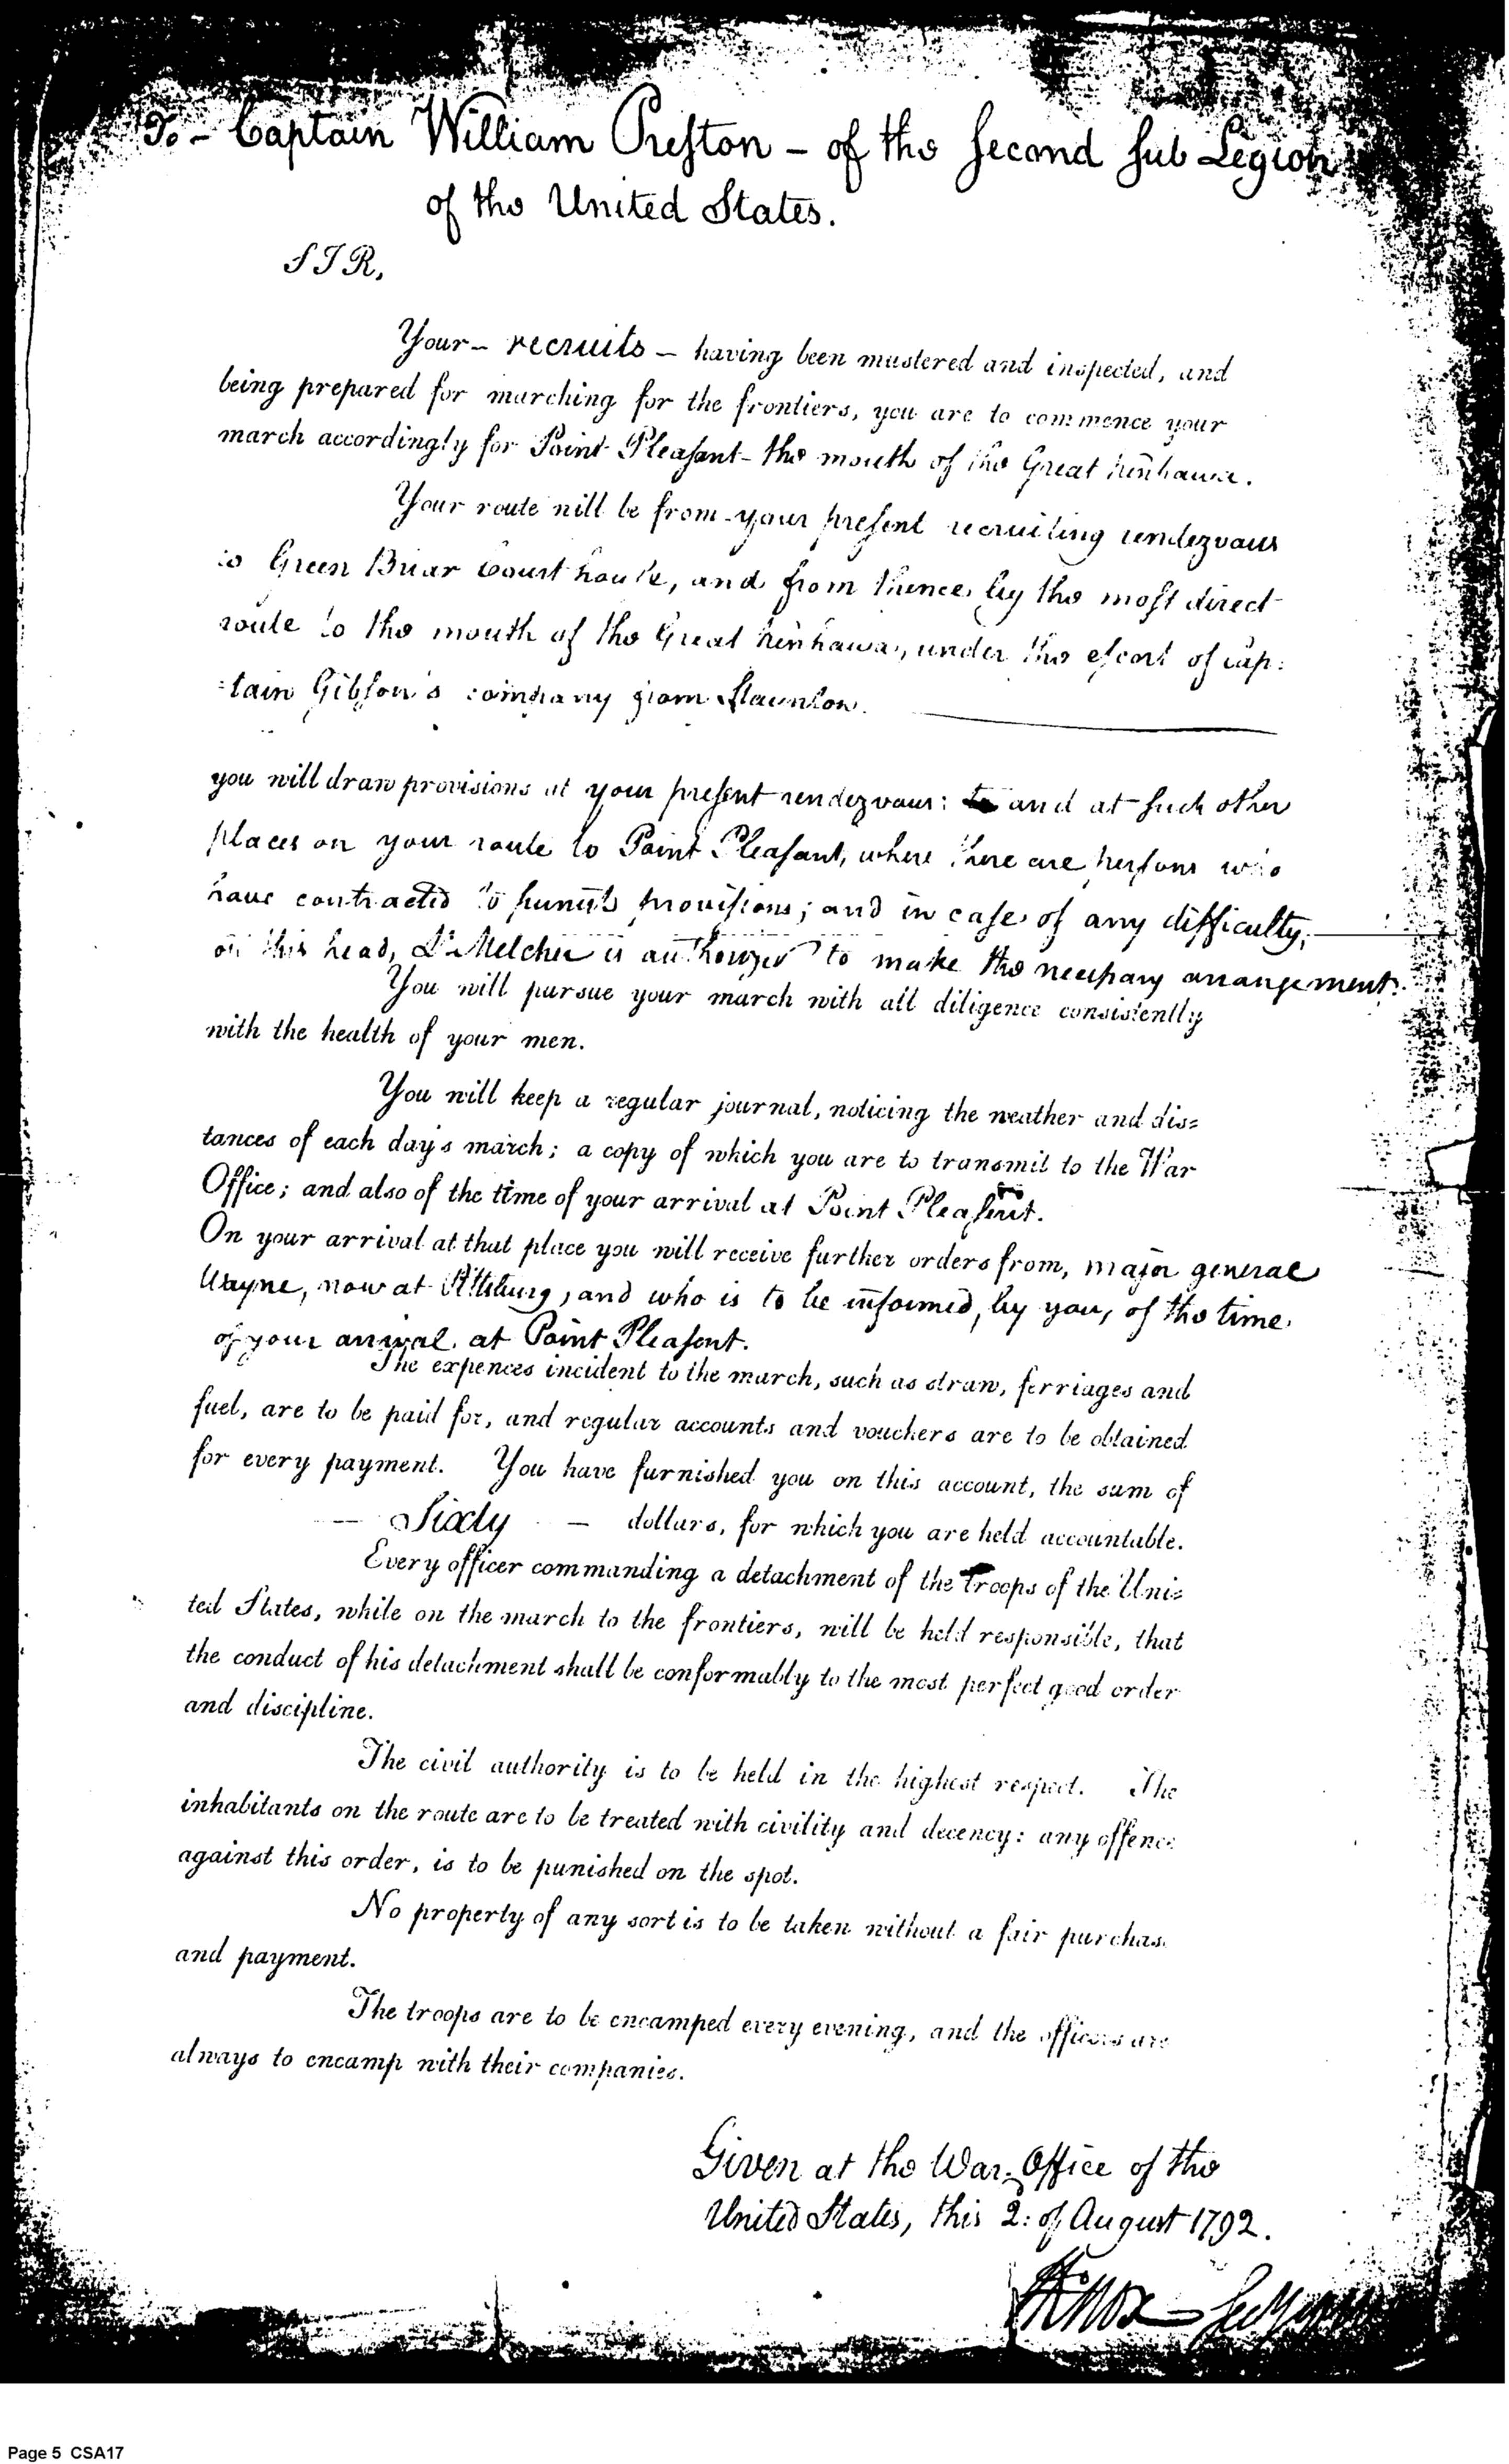 To - Captain William Preston - of the Second Sub Legion
of the United States.
SIR,
Your - recruits - having been mustered and inspected, and
being prepared for marching for the frontiers, you are to commence your
march accordingly for Point Pleasant - the mouth of the Great Kenhawa.
Your route will be from your present recruiting rendezvous
to Green Briar Court house, and from thence, by the most direct
route to the mouth of the Great Kenhawa, under the escort of cap:
:tain Gibson's company from Staunton.
you will draw provisions at your present rendezvous: and at such other
places on your route to Point Pleasant, where there are persons who
have contracted to furnish provisions; and in case of any difficulty,
on this head, Lt Melcher is authorized to make the necessary arrangement.
You will pursue your march with all diligence consistently
with the health of your men.
You will keep a regular journal, noticing the weather and dis=
tances of each day's march; a copy of which you are to transmit to the War
Office; and also of the time of your arrival at Point Pleasent.
On your arrival at that place you will receive further orders from, major general
Wayne, now at Pittsburg, and who is to be informed, by you, of the time
of your arrival at Point Pleasent.
The expences incident to the march, such as straw, ferriages and
fuel, are to be paid for, and regular accounts and vouchers are to be obtained
for every payment. You have furnished you on this account, the sum of
- Sixty - dollars, for which you are held accountable.
Every officer commanding a detachment of the Troops of the Uni=
ted States, while on the march to the frontiers, will be held responsible, that
the conduct of his detachment shall be conformably to the most perfect good order
and discipline.
The civil authority is to be held in the highest respect. The
inhabitants on the route are to be treated with civility and decency: any offence
against this order, is to be punished on the spot.
No property of any sort is to be taken without a fair purchas
and payment.
The troops are to be encamped every evening, and the officers are
always to encamp with their companies.
Given at the War Office of the
United States, this 2: of August 1792.
HKnox
Page 5 CSA17